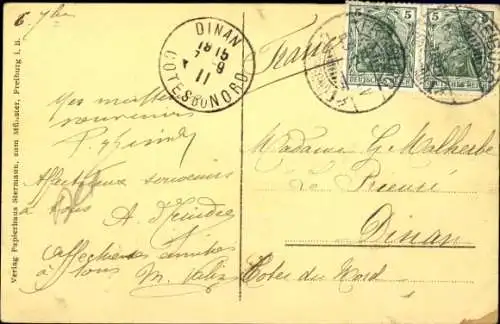 6 7bre
DINAN
18 15
7-9
11
COTES DU NORD
5 5
DEUTSCHES REICH
France
Mes meilleurs
souvenirs
Madame G. Malherbe
Le Prieuré
Dinan
Cotes du Nord
Affectueux souvenirs
à tous
Affectueuses amitiés
à tous
Verlag Papierhaus Stermann, zum Münster, Freiburg i. B.